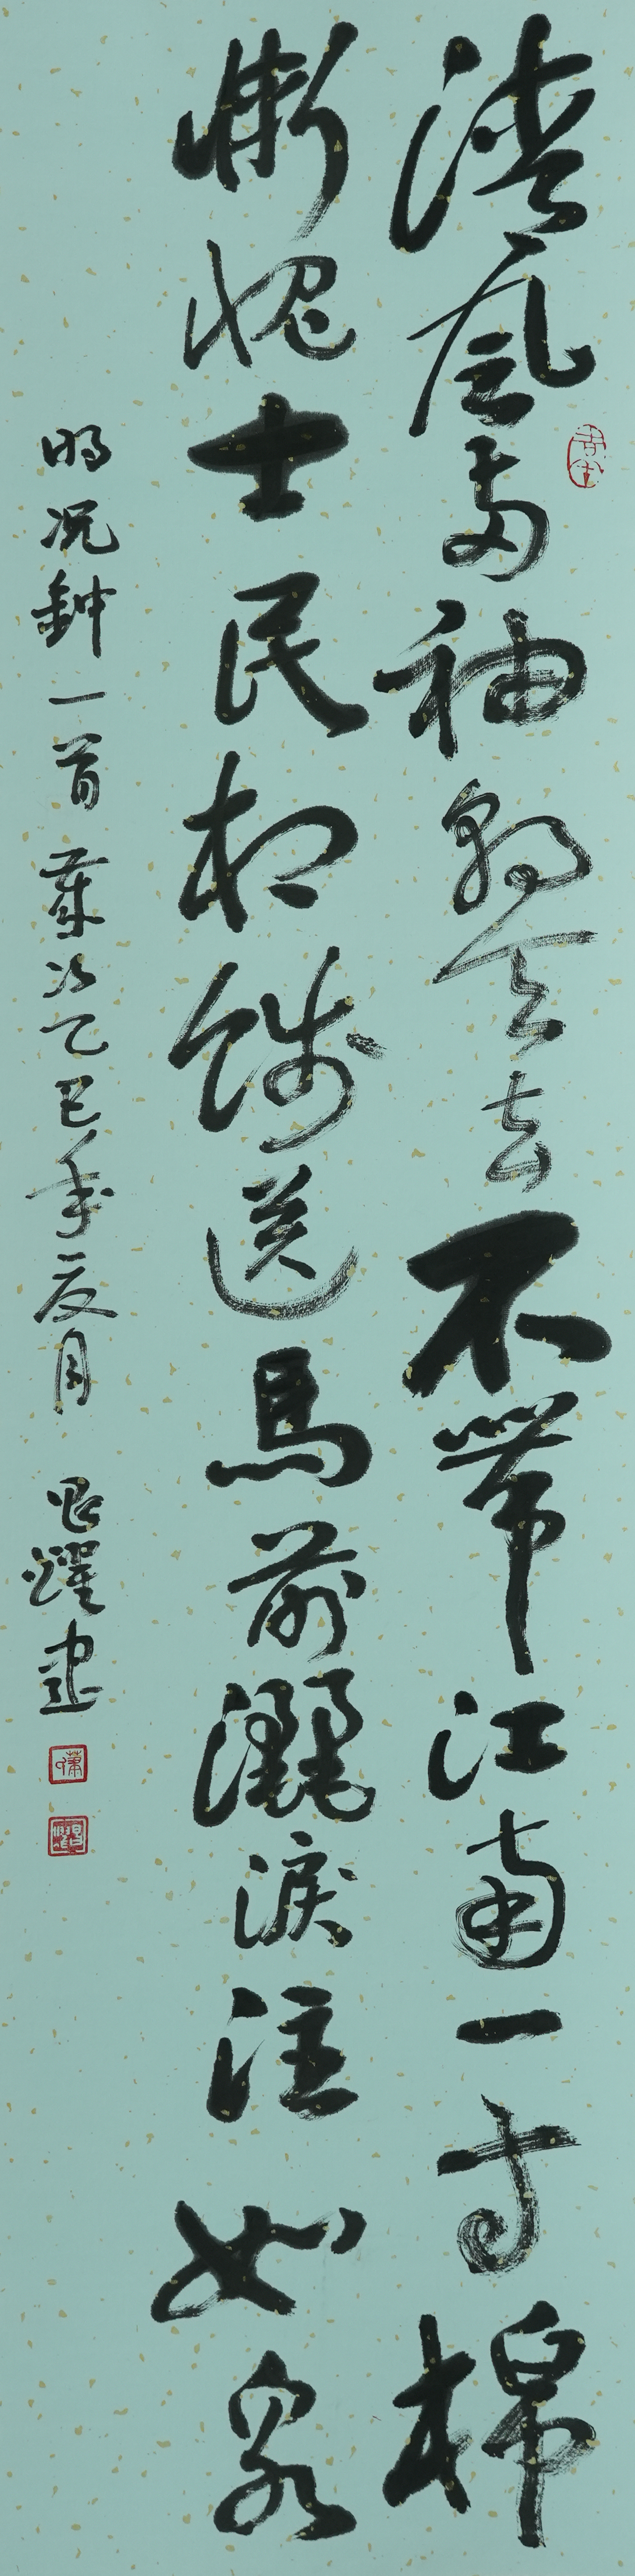 清風兩袖朝天去不帶江南一寸棉
慚愧士民相餞送馬前灑淚注如泉
明况鈡一首歲次乙巳年夏月躍書